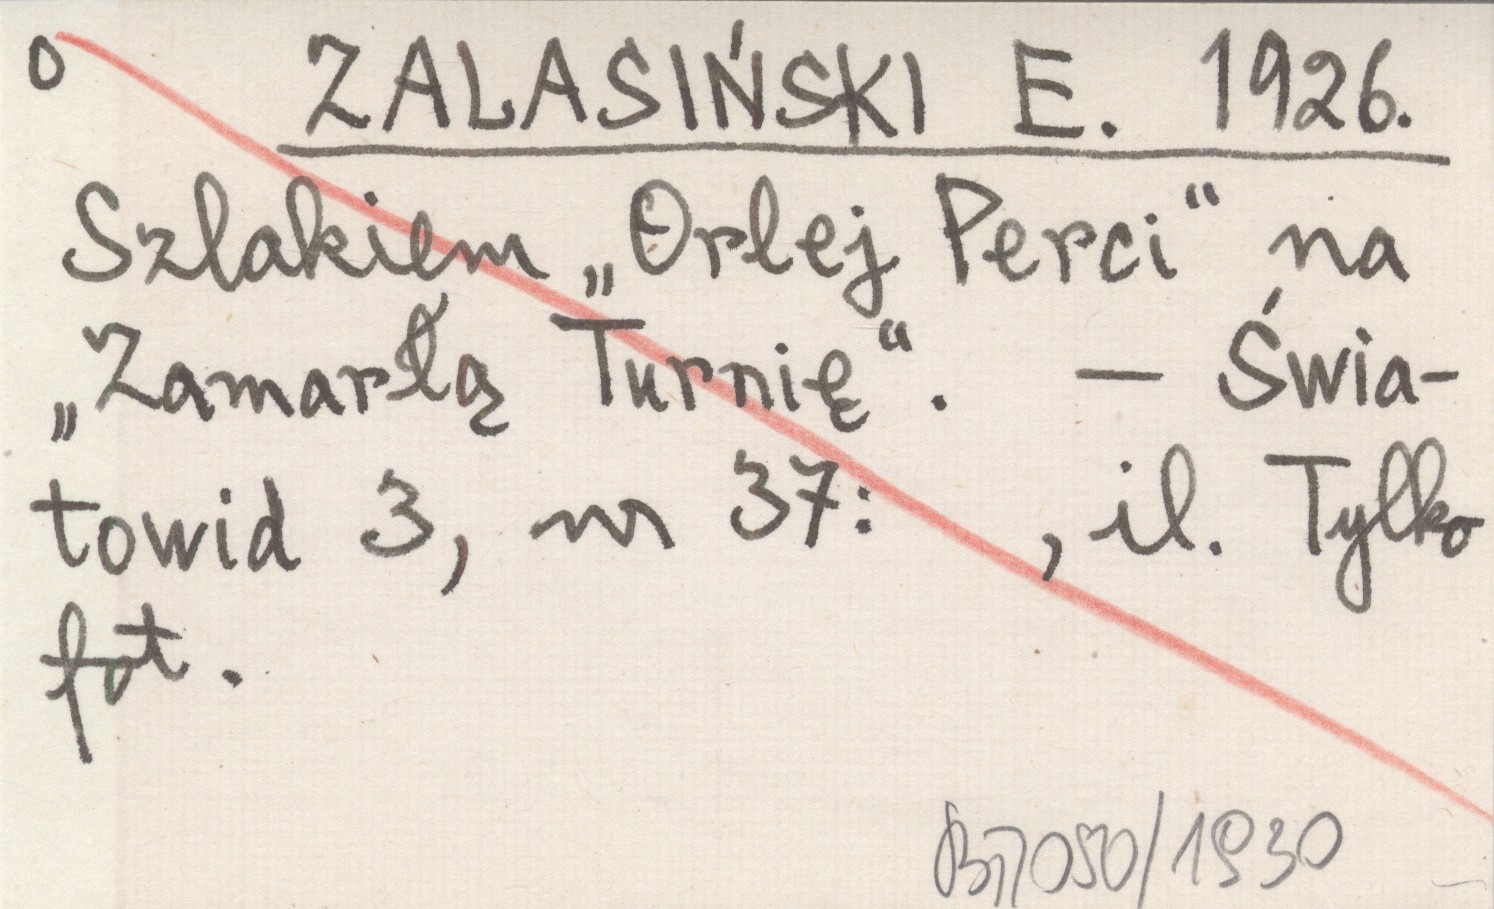 o ZALASIŃSKI E. 1926.
Szlakiem „Orlej Perci“ na
„Zamarłą Turnię“. — Świa-
towid 3, nr 37: , il. Tylko
fot.
050/1930